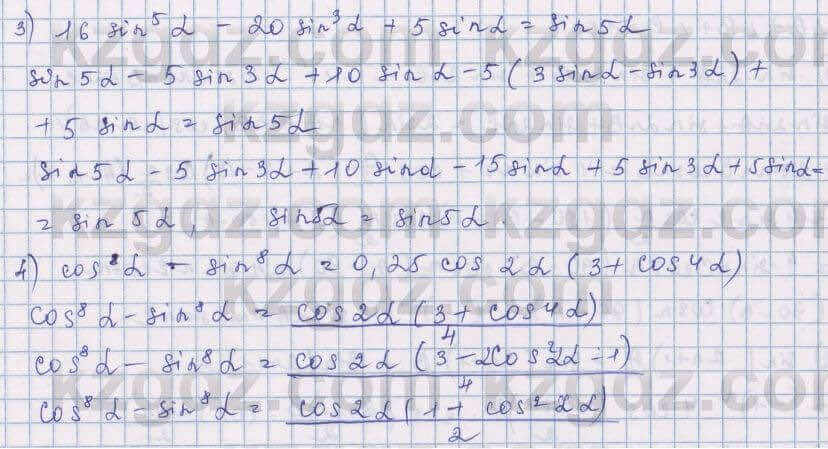 3) 16 sin⁵α − 20 sin³α + 5 sinα = sin5α
sin5α − 5 sin3α + 10 sinα − 5(3 sinα − sin3α) +
+ 5 sinα = sin5α
sin5α − 5 sin3α + 10 sinα − 15 sinα + 5 sin3α + 5 sinα =
= sin 5α, sin5α = sin5α.
4) cos⁸α − sin⁸α = 0,25 cos 2α (3 + cos4α)
cos⁸α − sin⁸α = cos2α (3 + cos4α) / 4
cos⁸α − sin⁸α = cos2α (3 − 2cos²2α − 1) / 4
cos⁸α − sin⁸α = cos2α (1 + cos²2α) / 2
kzgdz.com